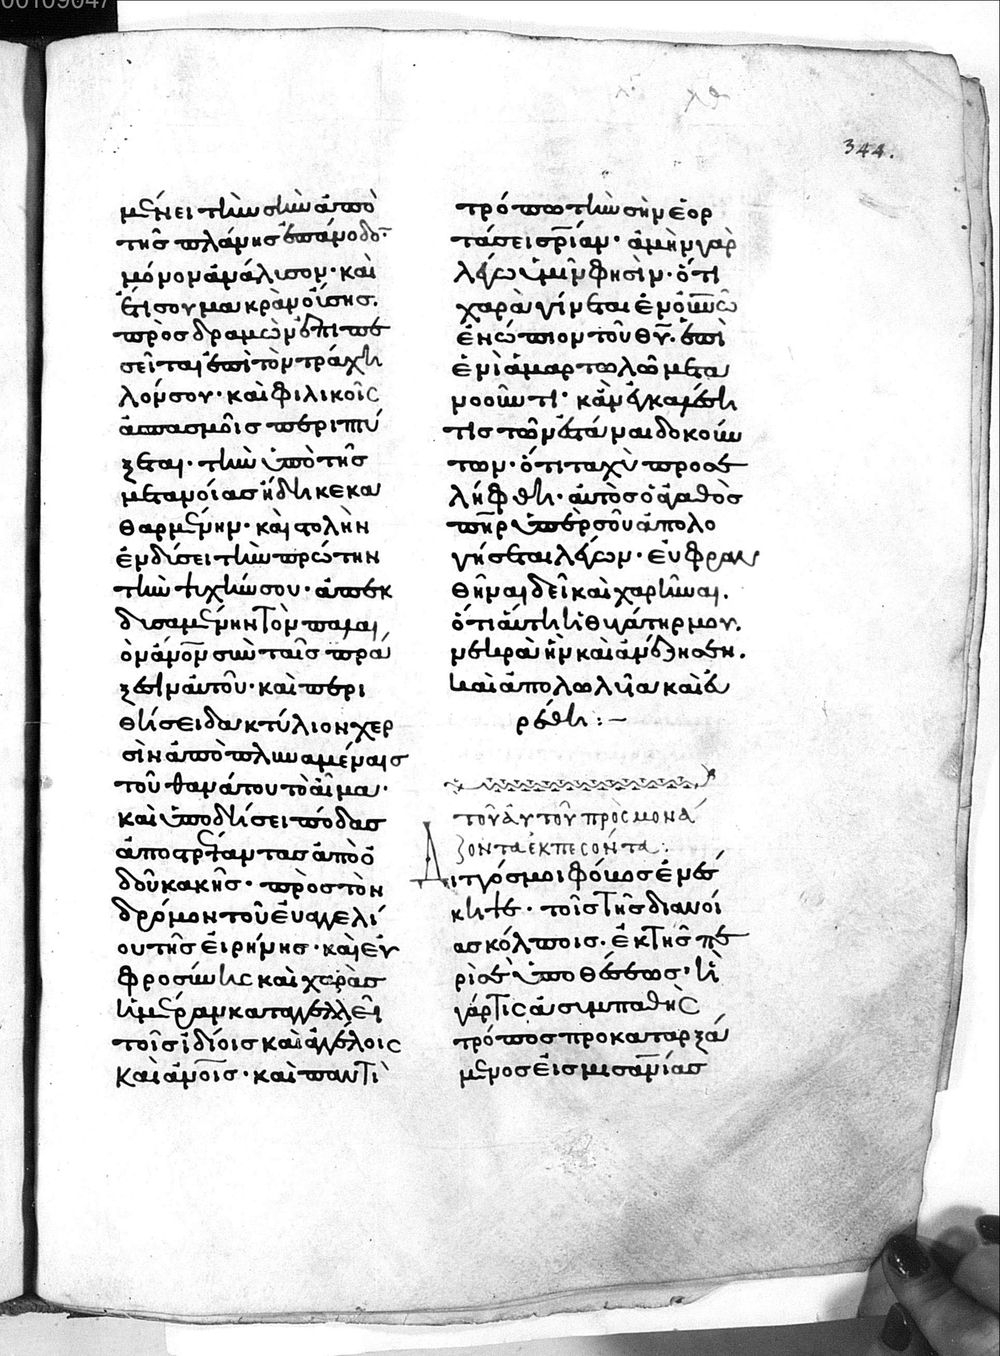 00109047
344.
μένει τὴν σὴν ἀπὸ
τῆς πλάνης ἐπάνοδο̅·
μόνον ἀνάλυσον· καὶ
ἔτι σου μακρὰν οὔσης.
προσδραμὼν ἐπιπε
σεῖται ἐπὶ τὸν τράχη
λόν σου· καὶ φιλικοῖς
ἀσπασμοῖς περιπτύ
ξεται· τὴν ὑπὸ τῆς
μετανοίας ἤδη κεκα
θαρμένην· καὶ στολὴν
ἐνδύσει τὴν πρώτην
τὴν ψυχήν σου· ἀπεκ
δυσαμένην τὸν παλαι
ὸν ἄνο̅ν σὺν ταῖς πρά
ξεσιν αὐτοῦ· καὶ περι
θήσει δακτύλιον χερ
σὶν ἀποπλυναμέναις
τοῦ θανάτου τὸ αἷμα·
καὶ ὑποδήσει πόδας
ἀποστρέψαντας ἀπὸ ὁ
δοῦ κακῆς· πρὸς τὸν
δρόμον τοῦ εὐαγγελί
ου τῆς εἰρήνης· καὶ εὐ
φροσύνης καὶ χαρᾶς
ἡμέραν καταγγελλεῖ
τοῖς ἰδίοις καὶ ἀγγέλοις
καὶ ἀνο̅ις· καὶ παντὶ
τρόπω τὴν σὴν ἑορ
τάσει σρ̅ίαν· ἀμὴν γὰρ
λέγω ὑμῖν φησὶν· ὅτι
χαρὰ γίνεται ἐν οὐ̅νω̅
ἐνώπιον τοῦ θυ̅· ἐπὶ
ἑνὶ ἁμαρτωλῶ μετα
νοοῦντι· κἂν ἐγκαλέση
τις τῶν ἑστάναι δοκούν
των· ὅτι ταχὺ προσε
λήφθη· αὐτὸς ὁ ἀγαθὸς
πη̅ρ ὑπὲρ σοῦ ἀπολο
γήσεται λέγων· εὐφραν
θῆναι δεῖ καὶ χαρῆναι.
ὅτι αὕτη ἡ θυγάτηρ μου.
νεκρὰ ἦν καὶ ἀνέζησεν.
καὶ ἀπολωλυῖα καὶ εὑ
ρέθη :–
τοῦ αὐτοῦ πρὸς μονά
ζοντα ἐκπεσόντα:
Διττός μοι φόβος ἐνέ
κειτο· τοῖς τῆς διανοί
ας κόλποις· ἐκ τῆς πε
ρὶ σὲ ὑποθέσεως· ἢ
γάρ τις ἀσυμπαθὴς
τρόπος προκαταρξά
μενος εἰς μισαν̅ίας